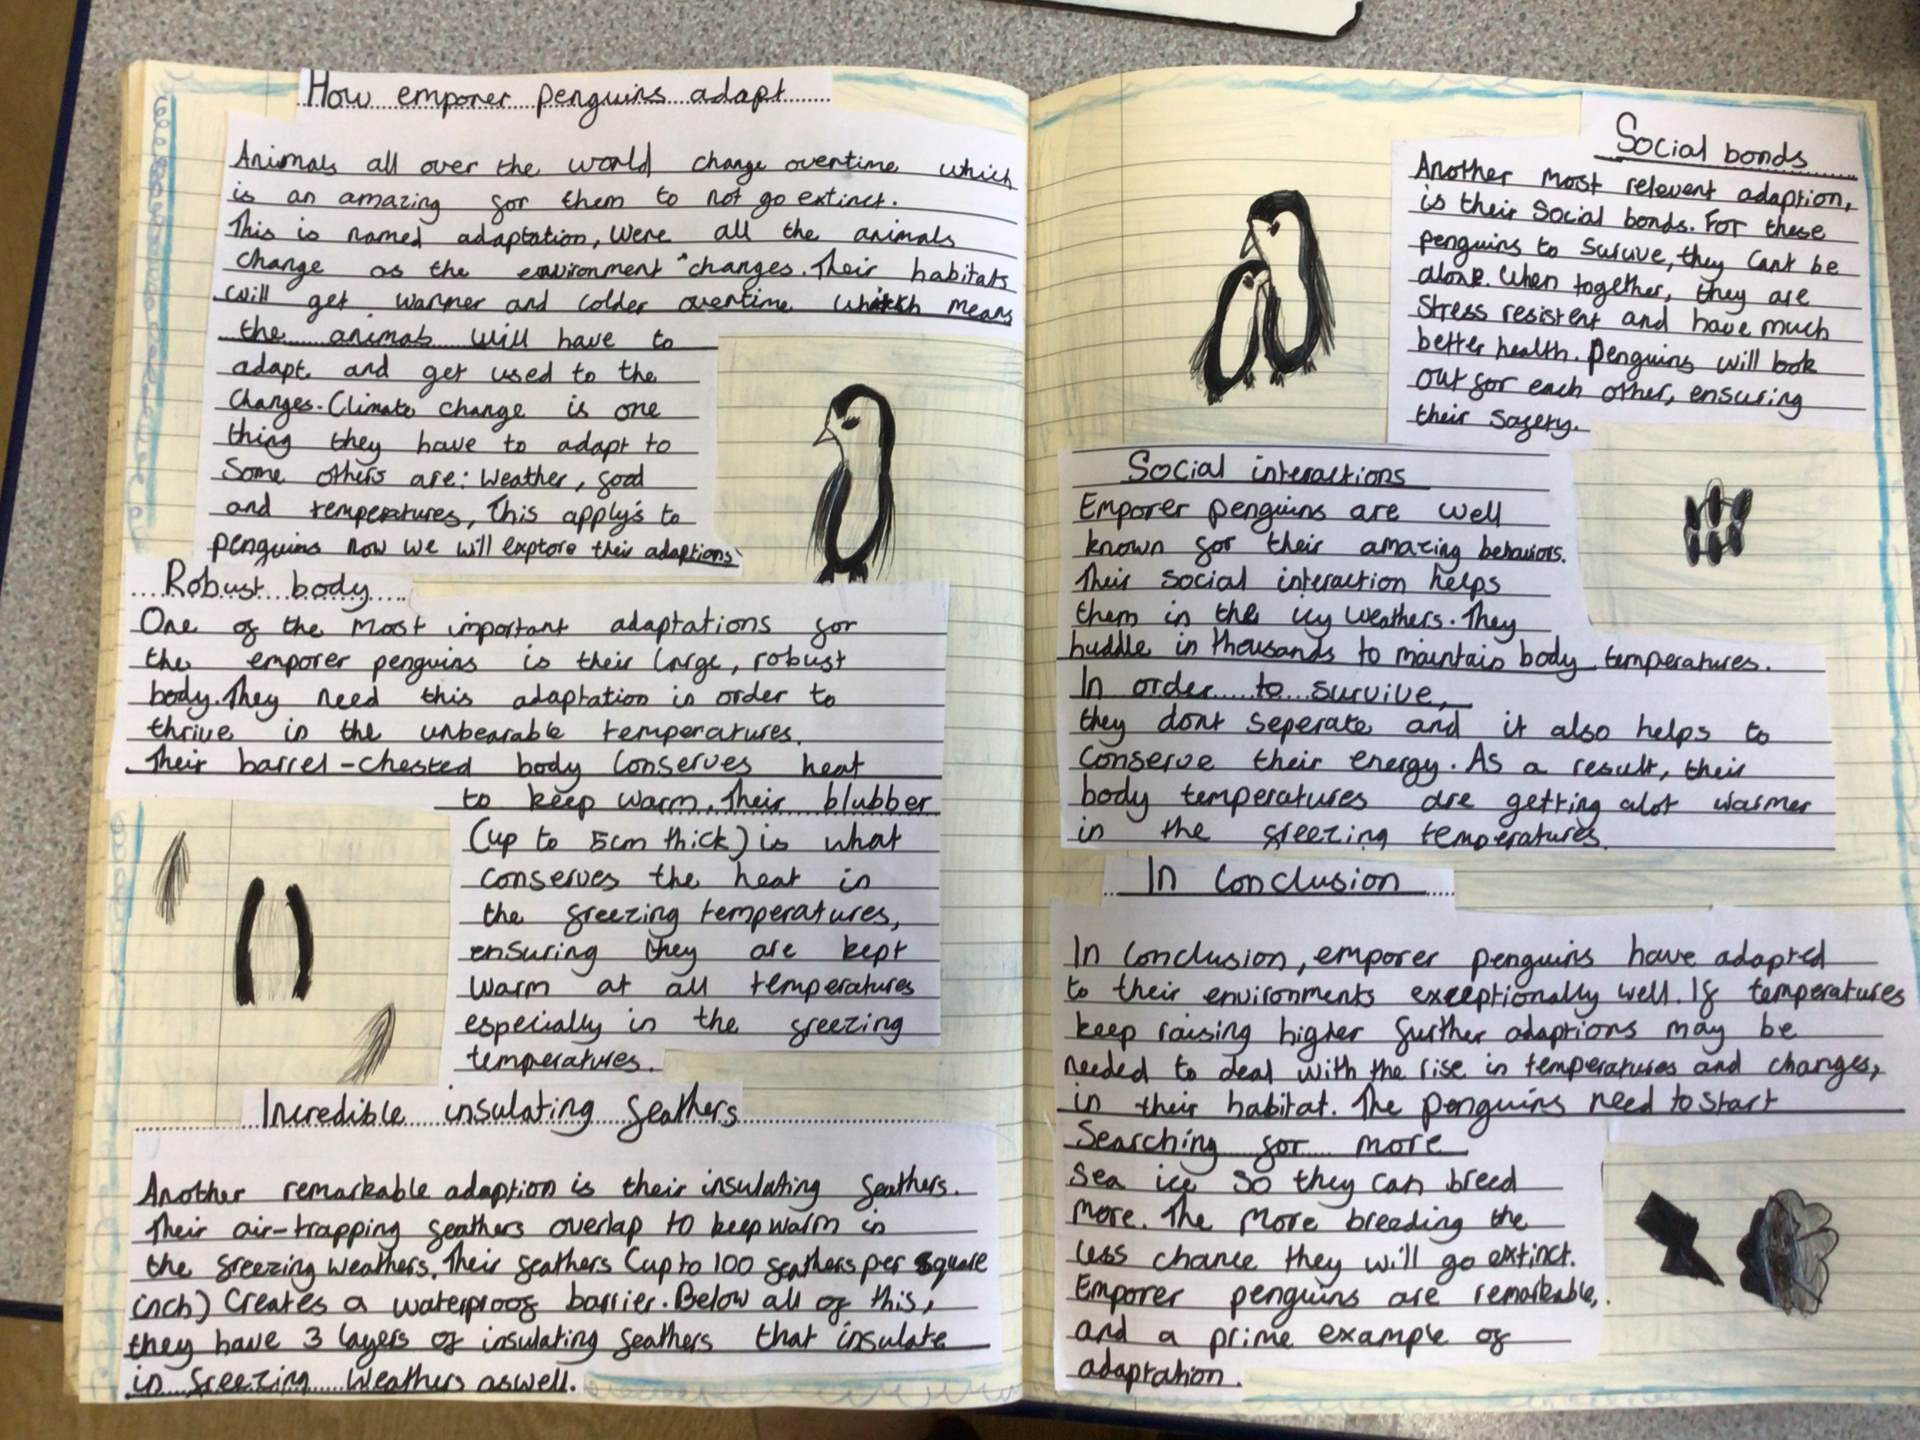 How emporer penguins adapt
Animals all over the world change overtime which
is an amazing for them to not go extinct.
This is named adaptation, Were all the animals
change as the environment changes. Their habitats
will get warmer and colder overtime which means
the animals will have to
adapt and get used to the
changes. Climate change is one
thing they have to adapt to
Some others are: Weather, food
and temperatures, This apply's to
penguins now we will explore their adaptions
Robust body
One of the most important adaptations for
the emporer penguins is their large, robust
body. They need this adaptation in order to
thrive in the unbearable temperatures.
Their barrel-chested body conserves heat
to keep warm. Their blubber
(up to 5cm thick) is what
conserves the heat in
the freezing temperatures,
ensuring they are kept
warm at all temperatures
especially in the freezing
temperatures.
Incredible insulating feathers
Another remarkable adaption is their insulating feathers.
Their air-trapping feathers overlap to keep warm in
the freezing weathers. Their feathers (up to 100 feathers per square
inch) creates a waterproof barrier. Below all of this,
they have 3 layers of insulating feathers that insulate
in freezing weathers aswell.
Social bonds
Another most relevent adaption,
is their social bonds. For these
penguins to survive, they cant be
alone. When together, they are
stress resistent and have much
better health. Penguins will look
out for each other, ensuring
their safety.
Social interactions
Emporer penguins are well
known for their amazing behaviors.
Their social interaction helps
them in the icy weathers. They
huddle in thousands to maintain body temperatures.
In order to survive,
they dont seperate and it also helps to
conserve their energy. As a result, their
body temperatures are getting alot warmer
in the freezing temperatures.
In conclusion
In conclusion, emporer penguins have adapted
to their environments exceptionally well. If temperatures
keep raising higher further adaptions may be
needed to deal with the rise in temperatures and changes,
in their habitat. The penguins need to start
searching for more
sea ice so they can breed
more. The more breeding the
less chance they will go extinct.
Emporer penguins are remarkable,
and a prime example of
adaptation.